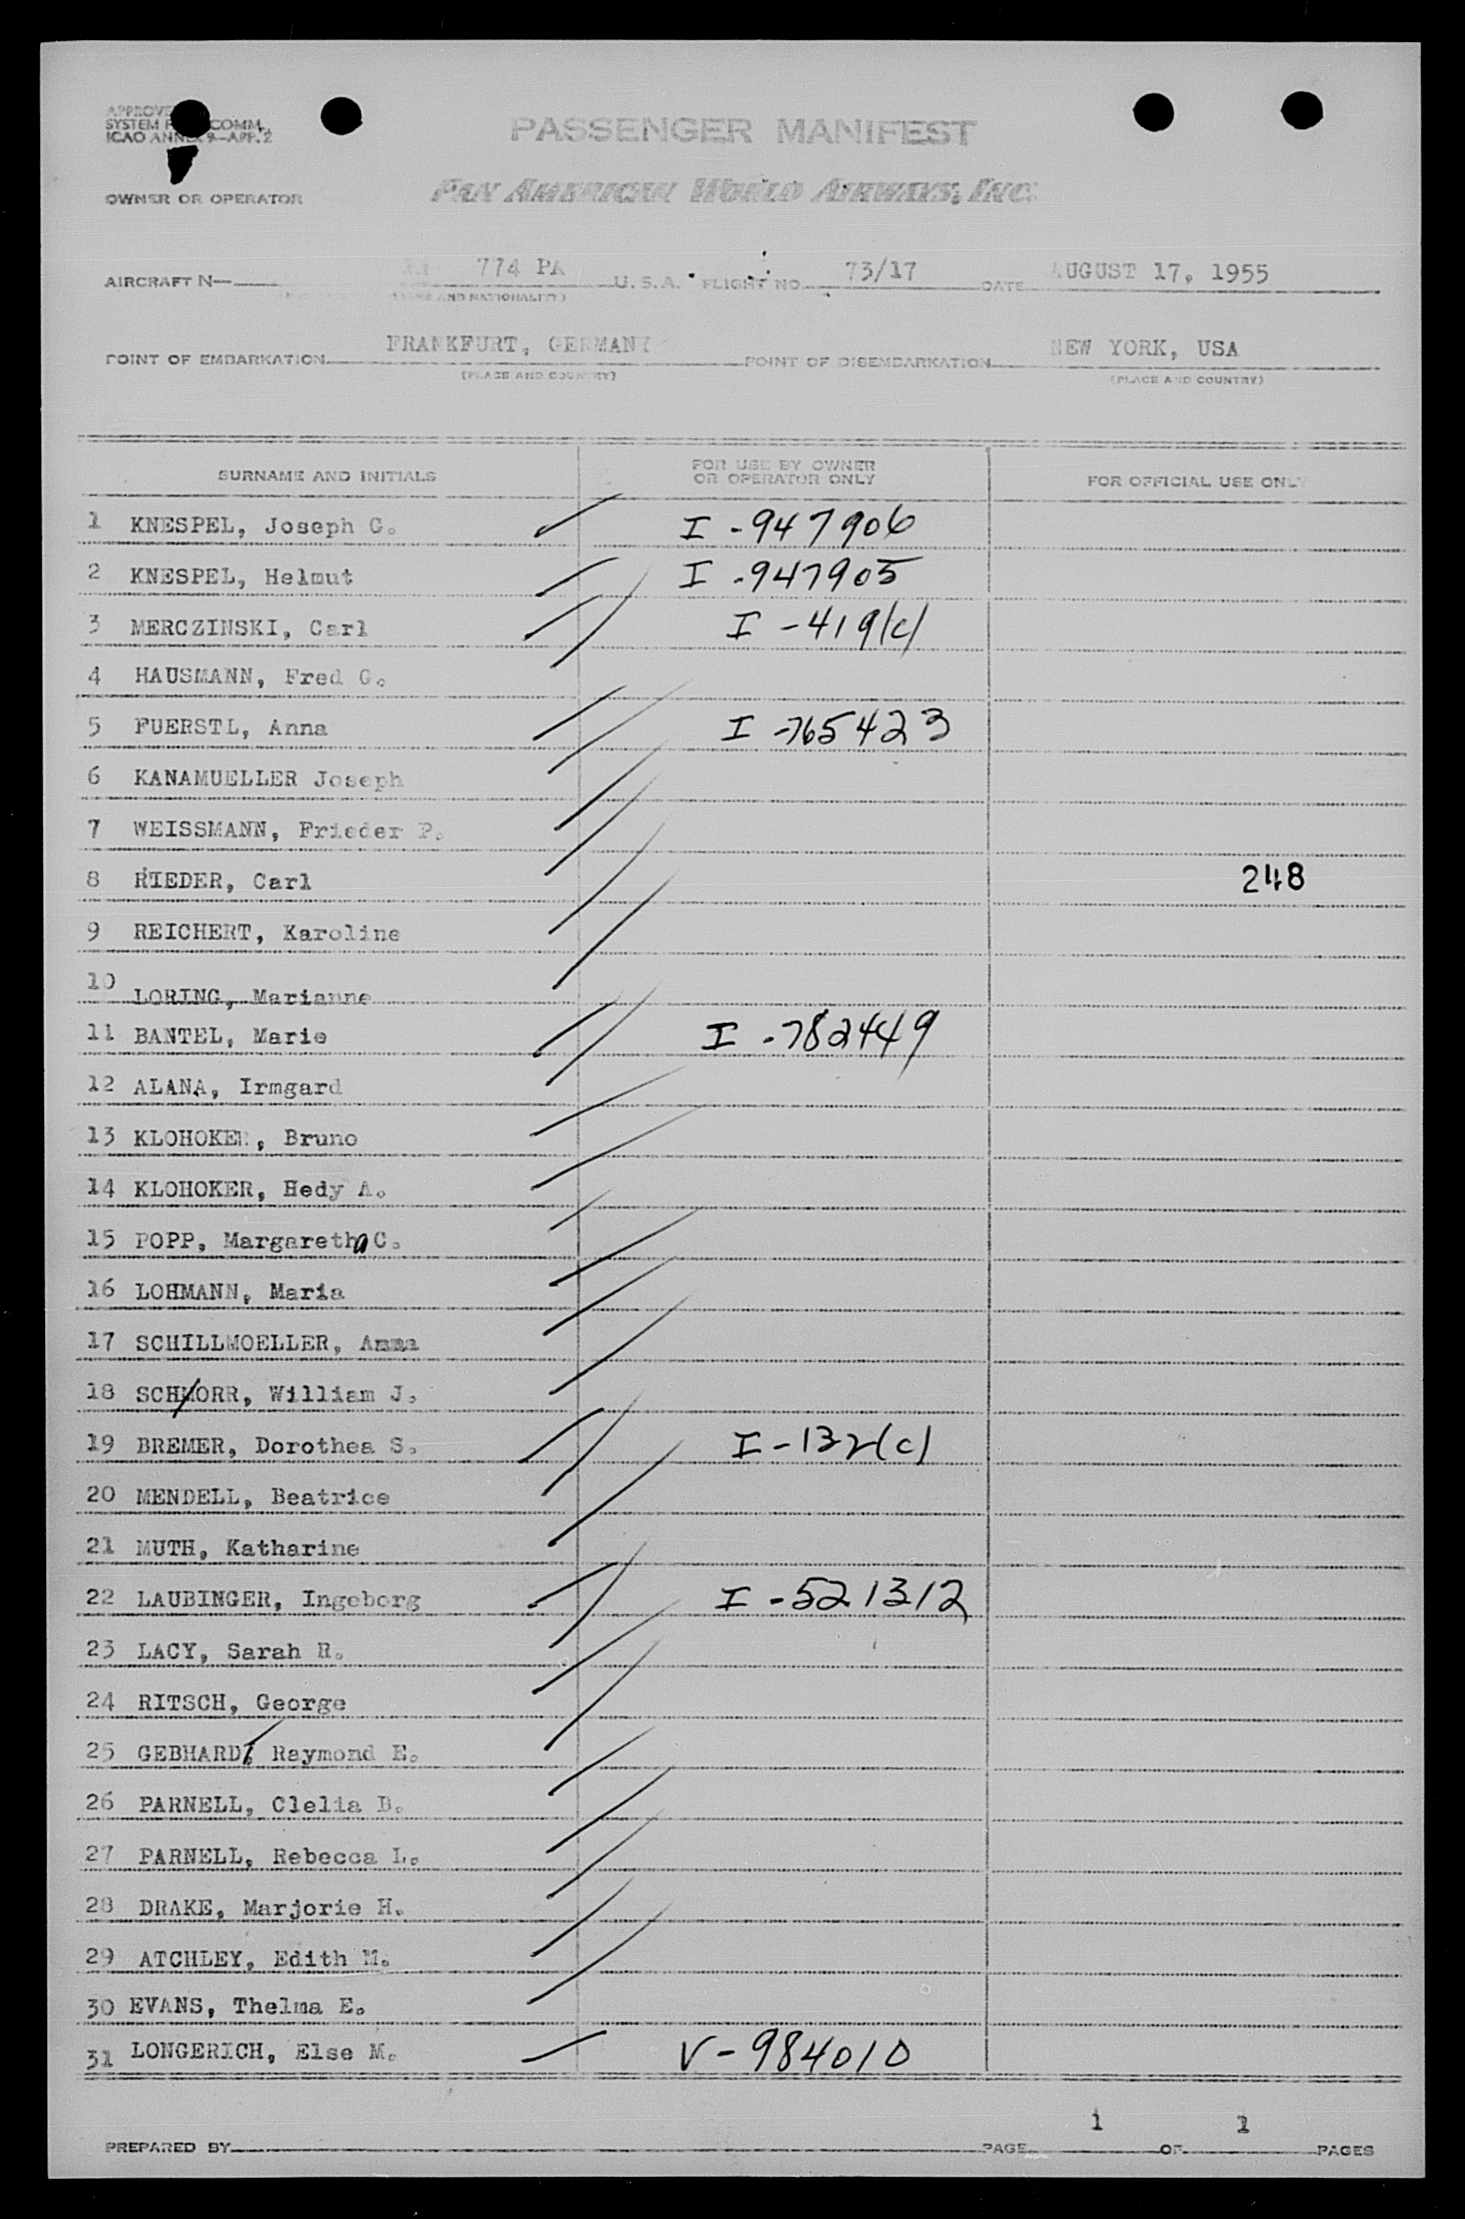 PASSENGER MANIFEST
SYSTEM COMM.
ICAO ANNEX 9—APP. 2
OWNER OR OPERATOR PAN AMERICAN WORLD AIRWAYS, INC.
AIRCRAFT N— 774 PA U. S. A. FLIGHT NO. 73/17 DATE AUGUST 17, 1955
POINT OF EMBARKATION FRANKFURT, GERMANY POINT OF DISEMBARKATION NEW YORK, USA
(PLACE AND COUNTRY) (PLACE AND COUNTRY)
SURNAME AND INITIALS FOR USE BY OWNER OR OPERATOR ONLY FOR OFFICIAL USE ONLY
1 KNESPEL, Joseph G. I -947906
2 KNESPEL, Helmut I -947905
3 MERCZINSKI, Carl I -419(c)
4 HAUSMANN, Fred G.
5 FUERSTL, Anna I -765423
6 KANAMUELLER Joseph
7 WEISSMANN, Frieder P.
8 RIEDER, Carl 248
9 REICHERT, Karoline
10 LORING, Marianne
11 BANTEL, Marie I -782449
12 ALANA, Irmgard
13 KLOHOKER, Bruno
14 KLOHOKER, Hedy A.
15 POPP, Margaretha C.
16 LOHMANN, Maria
17 SCHILLMOELLER, Anna
18 SCHMORR, William J.
19 BREMER, Dorothea S. I -132(c)
20 MENDELL, Beatrice
21 MUTH, Katharine
22 LAUBINGER, Ingeborg I -521312
23 LACY, Sarah R.
24 RITSCH, George
25 GEBHARDT, Raymond E.
26 PARNELL, Clelia D.
27 PARNELL, Rebecca L.
28 DRAKE, Marjorie H.
29 ATCHLEY, Edith M.
30 EVANS, Thelma E.
31 LONGERICH, Else M. V-984010
PREPARED BY PAGE 1 OF 1 PAGES